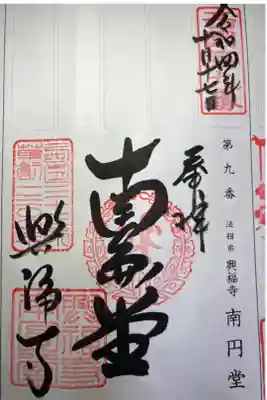 令和四年
十月十七日
第九番 法相宗 興福寺 南円堂
奉拝
南圓堂
興福寺